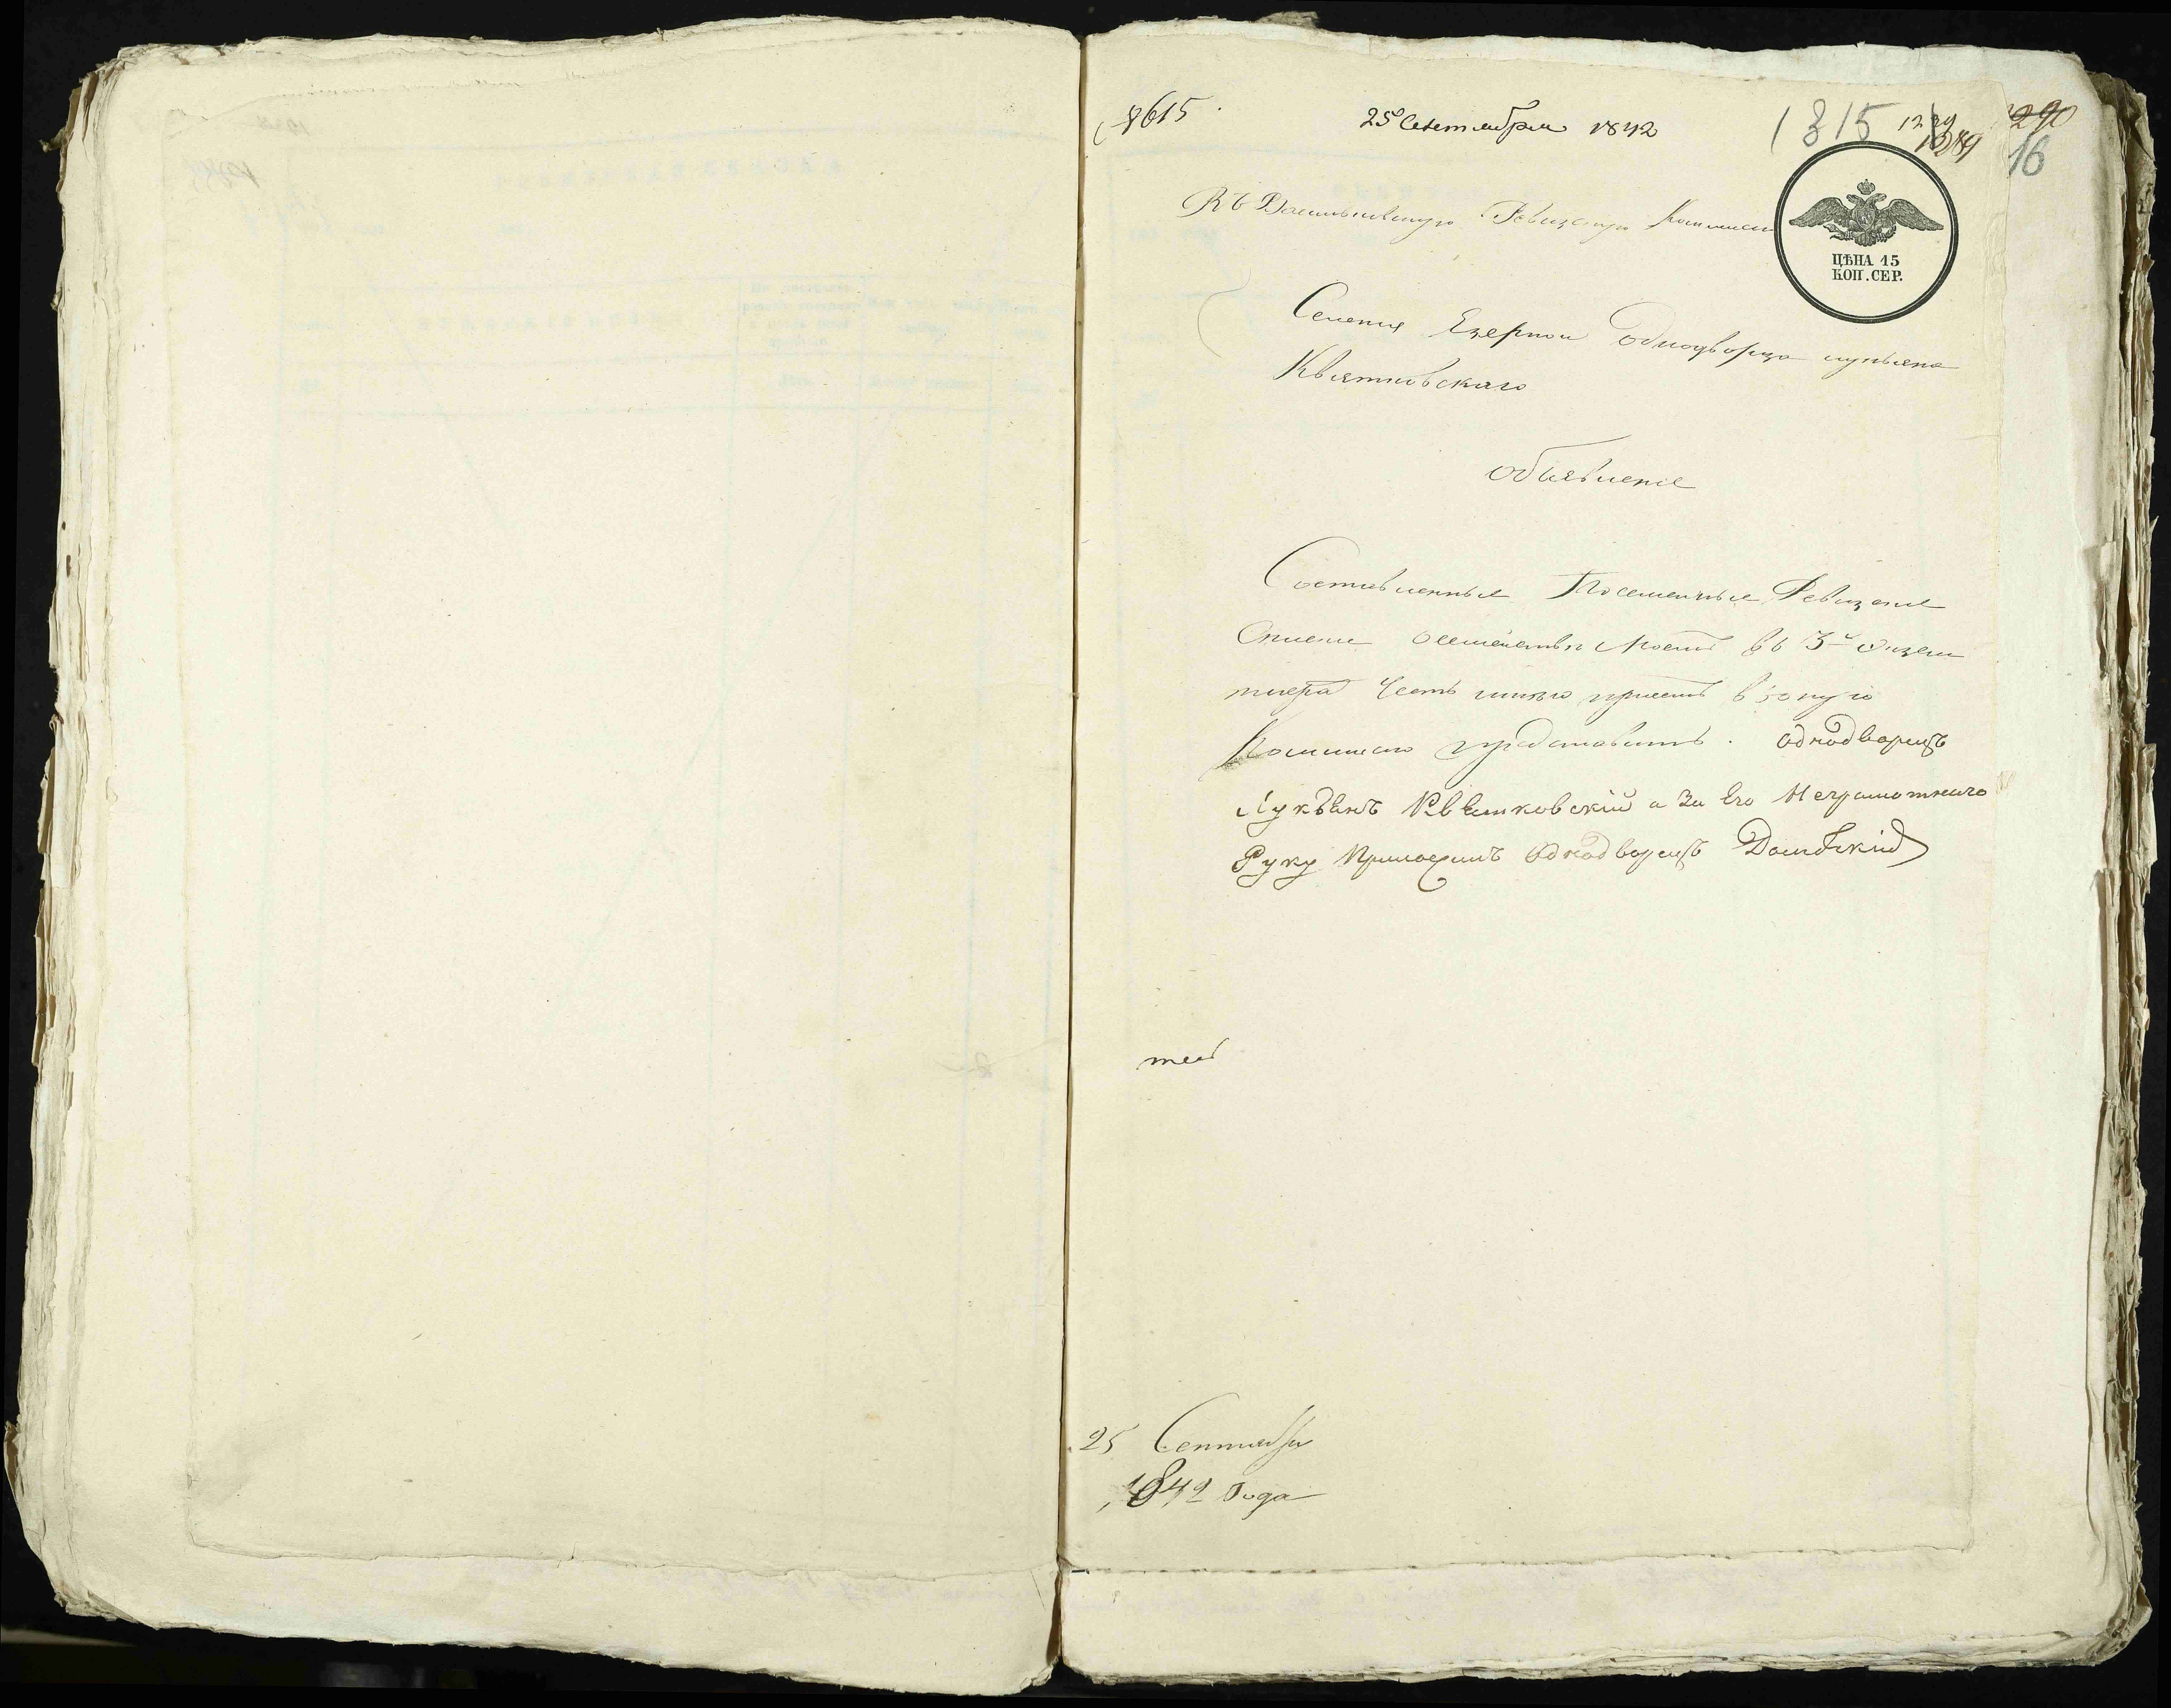 8615.
25 Сентября 1842
1315
1289
290
16
Въ Васильковскую Ревизскую Коммисію
ЦѢНА 15
КОП. СЕР.
Селенія Езерной Однодворца лукьяна
Квятковскаго
объявленіе
Составленные Посемейные Ревизскіе
Списки о семействѣ моемъ въ 3х экзем
плярахъ честь имѣю при семъ въ оную
Коммисію представить. однодворецъ
Лукъянъ Квятковскій а За Его Неграмотнаго
Руку Приложилъ Однодворецъ
25 Сентября
1842 Года